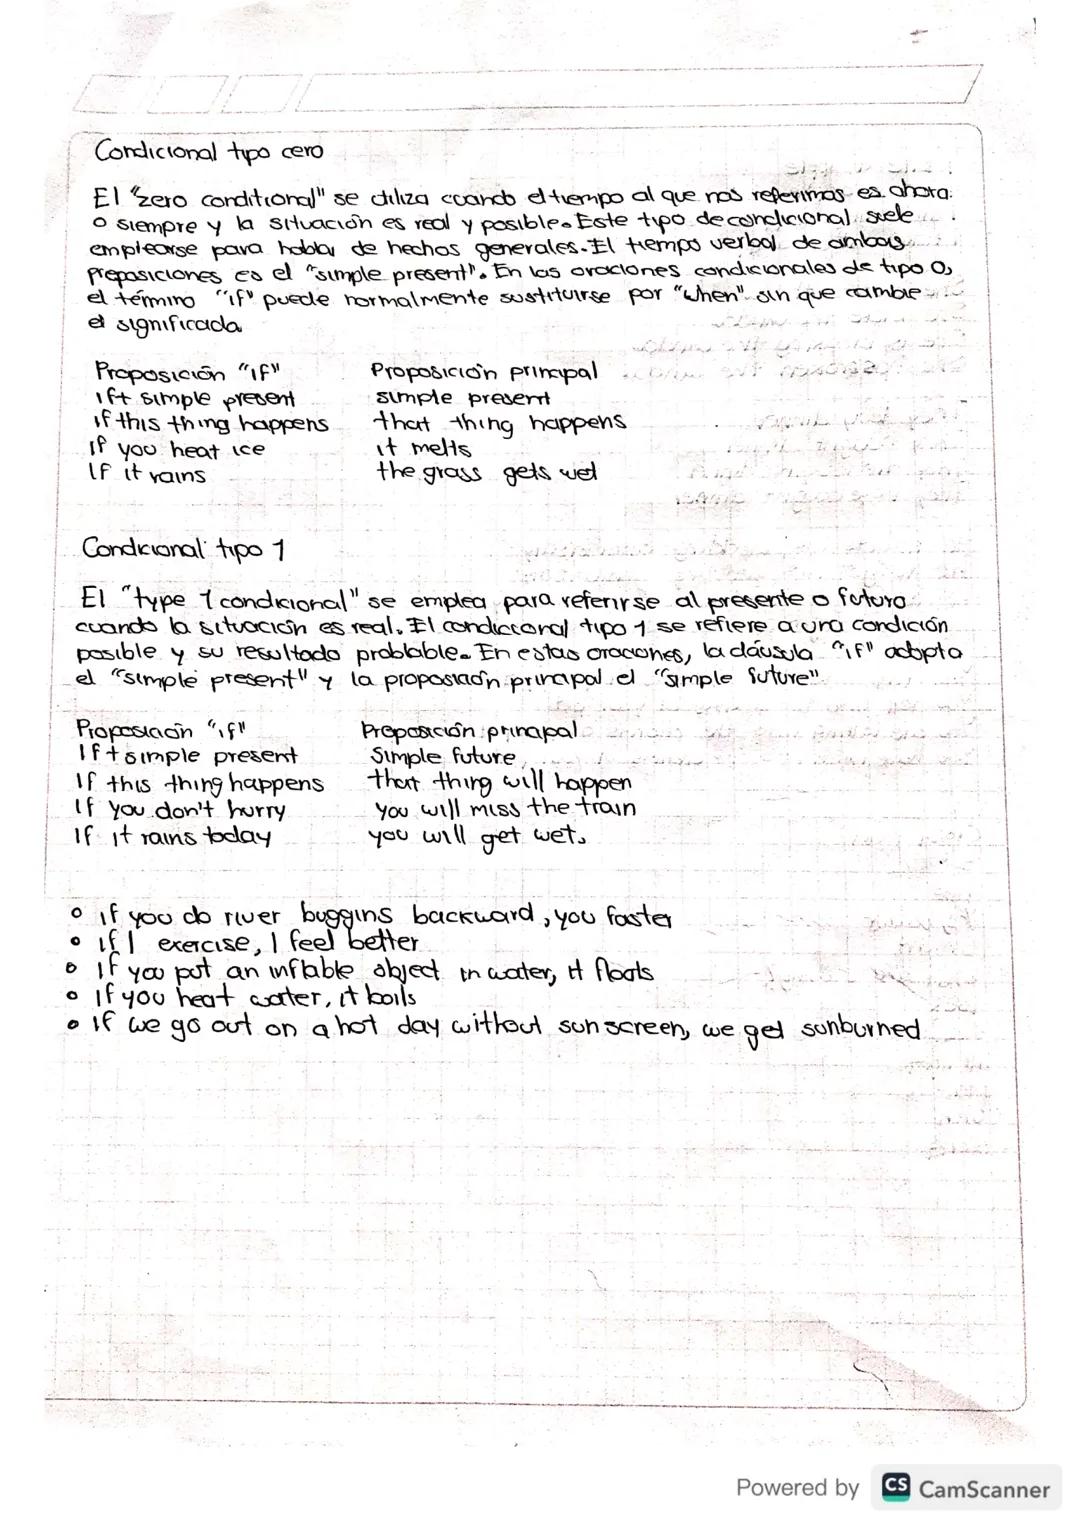 Condicional tipo cero
El "zero conditional" se utiliza cuando el tiempo al que nos referimos es ahora
o siempre y la situación es real y posible. Este tipo de condicional suele
emplearse para hablar de hechos generales. El tiempo verbal de ambas
preposiciones es el "simple present". En las oraciones condicionales de tipo 0,
el término "if" puede normalmente sustituirse por "when" sin que cambie
el significada
Proposición "if" Proposición principal
if+ simple present simple present
if this thing happens that thing happens
If you heat ice it melts
If it rains the grass gets wet
Condicional tipo 1
El "type 1 condicional" se emplea para referirse al presente o futuro
cuando la situación es real. El condicional tipo 1 se refiere a una condición
posible y su resultado problable. En estas oraciones, la cláusula "if" adopta
el "simple present" y la proposición principal el "simple future"
Proposición "if" Preposición principal
If + simple present Simple future
If this thing happens that thing will happen
If you don't hurry you will miss the train
If it rains today you will get wet.
• if you do river buggins backward, you faster
• if I exercise, I feel better
• If you put an inflable object in water, it floats
• If you heat water, it boils
• If we go out on a hot day without sunscreen, we get sunburned
Powered by CS CamScanner